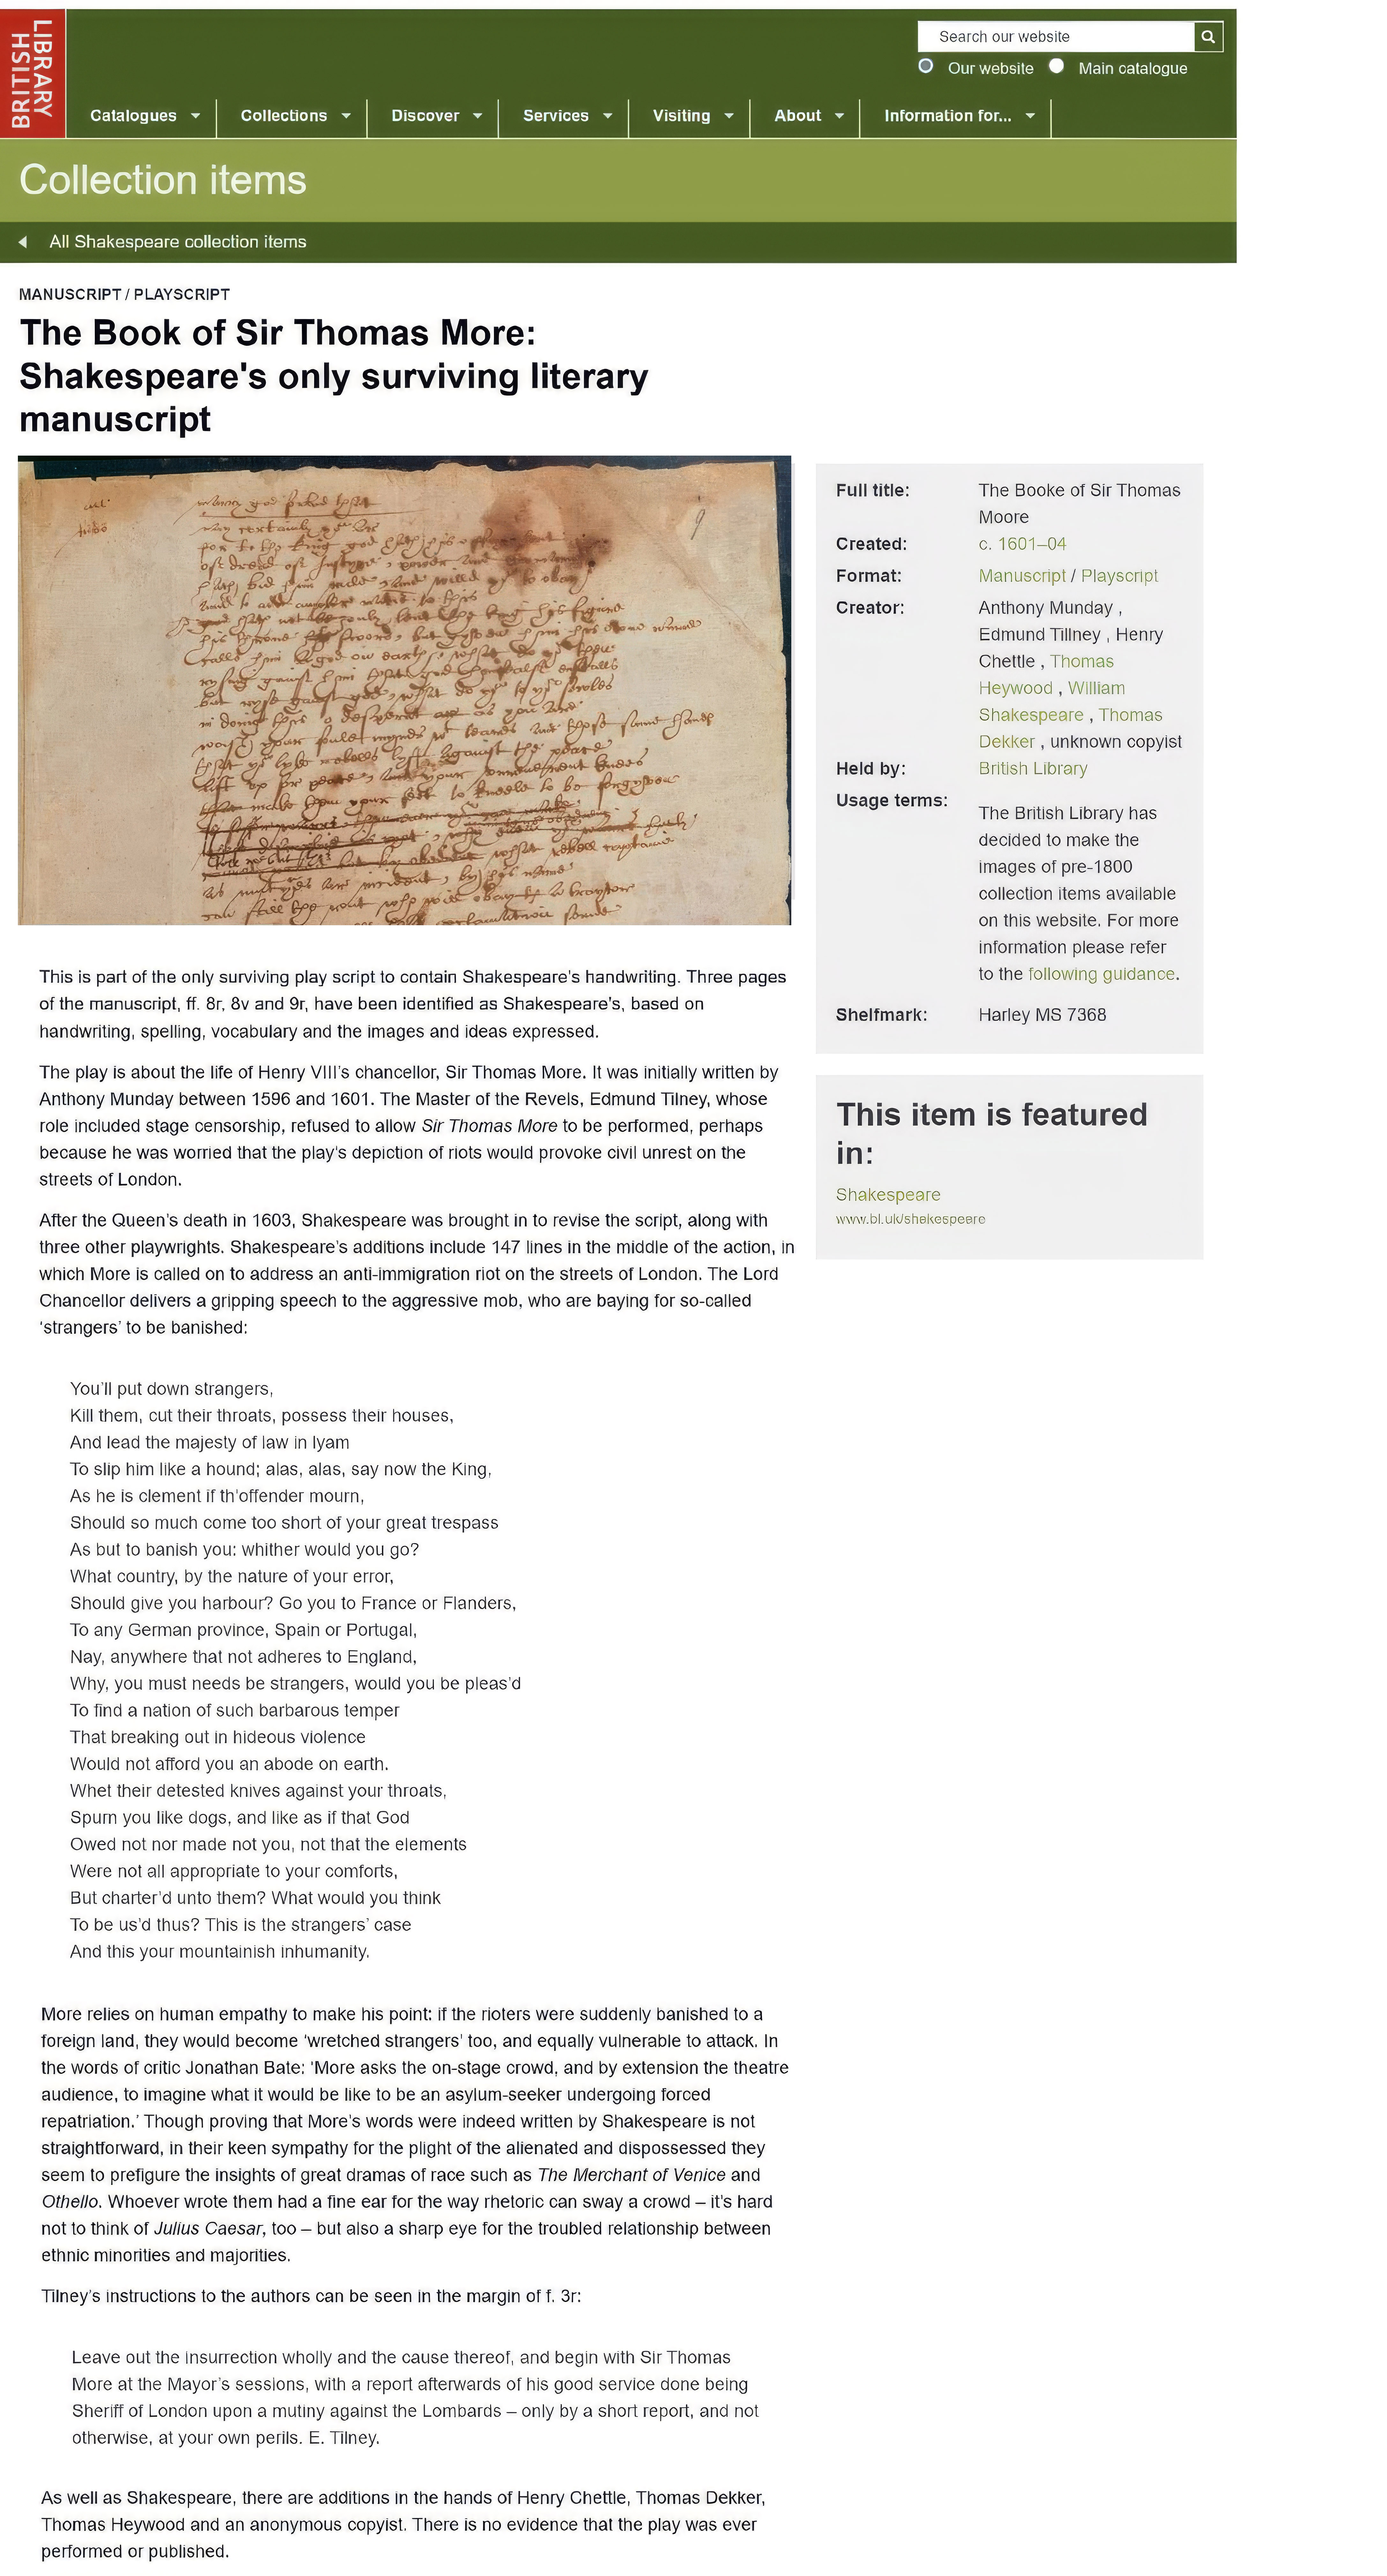 BRITISH
LIBRARY
Search our website
Our website Main catalogue
Catalogues Collections Discover Services Visiting About Information for...
Collection items
All Shakespeare collection items
MANUSCRIPT / PLAYSCRIPT
The Book of Sir Thomas More:
Shakespeare's only surviving literary
manuscript
Full title: The Booke of Sir Thomas
Moore
Created: c. 1601–04
Format: Manuscript / Playscript
Creator: Anthony Munday ,
Edmund Tillney , Henry
Chettle , Thomas
Heywood , William
Shakespeare , Thomas
Dekker , unknown copyist
Held by: British Library
Usage terms:
The British Library has
decided to make the
images of pre-1800
collection items available
on this website. For more
information please refer
to the following guidance.
Shelfmark: Harley MS 7368
This item is featured
in:
Shakespeare
www.bl.uk/shakespeare
This is part of the only surviving play script to contain Shakespeare's handwriting. Three pages
of the manuscript, ff. 8r, 8v and 9r, have been identified as Shakespeare's, based on
handwriting, spelling, vocabulary and the images and ideas expressed.
The play is about the life of Henry VIII's chancellor, Sir Thomas More. It was initially written by
Anthony Munday between 1596 and 1601. The Master of the Revels, Edmund Tilney, whose
role included stage censorship, refused to allow Sir Thomas More to be performed, perhaps
because he was worried that the play's depiction of riots would provoke civil unrest on the
streets of London.
After the Queen's death in 1603, Shakespeare was brought in to revise the script, along with
three other playwrights. Shakespeare's additions include 147 lines in the middle of the action, in
which More is called on to address an anti-immigration riot on the streets of London. The Lord
Chancellor delivers a gripping speech to the aggressive mob, who are baying for so-called
‘strangers’ to be banished:
You'll put down strangers,
Kill them, cut their throats, possess their houses,
And lead the majesty of law in lyam
To slip him like a hound; alas, alas, say now the King,
As he is clement if th'offender mourn,
Should so much come too short of your great trespass
As but to banish you: whither would you go?
What country, by the nature of your error,
Should give you harbour? Go you to France or Flanders,
To any German province, Spain or Portugal,
Nay, anywhere that not adheres to England,
Why, you must needs be strangers, would you be pleas'd
To find a nation of such barbarous temper
That breaking out in hideous violence
Would not afford you an abode on earth.
Whet their detested knives against your throats,
Spurn you like dogs, and like as if that God
Owed not nor made not you, not that the elements
Were not all appropriate to your comforts,
But charter'd unto them? What would you think
To be us'd thus? This is the strangers' case
And this your mountainish inhumanity.
More relies on human empathy to make his point: if the rioters were suddenly banished to a
foreign land, they would become ‘wretched strangers’ too, and equally vulnerable to attack. In
the words of critic Jonathan Bate: ‘More asks the on-stage crowd, and by extension the theatre
audience, to imagine what it would be like to be an asylum-seeker undergoing forced
repatriation.’ Though proving that More's words were indeed written by Shakespeare is not
straightforward, in their keen sympathy for the plight of the alienated and dispossessed they
seem to prefigure the insights of great dramas of race such as The Merchant of Venice and
Othello. Whoever wrote them had a fine ear for the way rhetoric can sway a crowd – it's hard
not to think of Julius Caesar, too – but also a sharp eye for the troubled relationship between
ethnic minorities and majorities.
Tilney's instructions to the authors can be seen in the margin of f. 3r:
Leave out the insurrection wholly and the cause thereof, and begin with Sir Thomas
More at the Mayor's sessions, with a report afterwards of his good service done being
Sheriff of London upon a mutiny against the Lombards – only by a short report, and not
otherwise, at your own perils. E. Tilney.
As well as Shakespeare, there are additions in the hands of Henry Chettle, Thomas Dekker,
Thomas Heywood and an anonymous copyist. There is no evidence that the play was ever
performed or published.